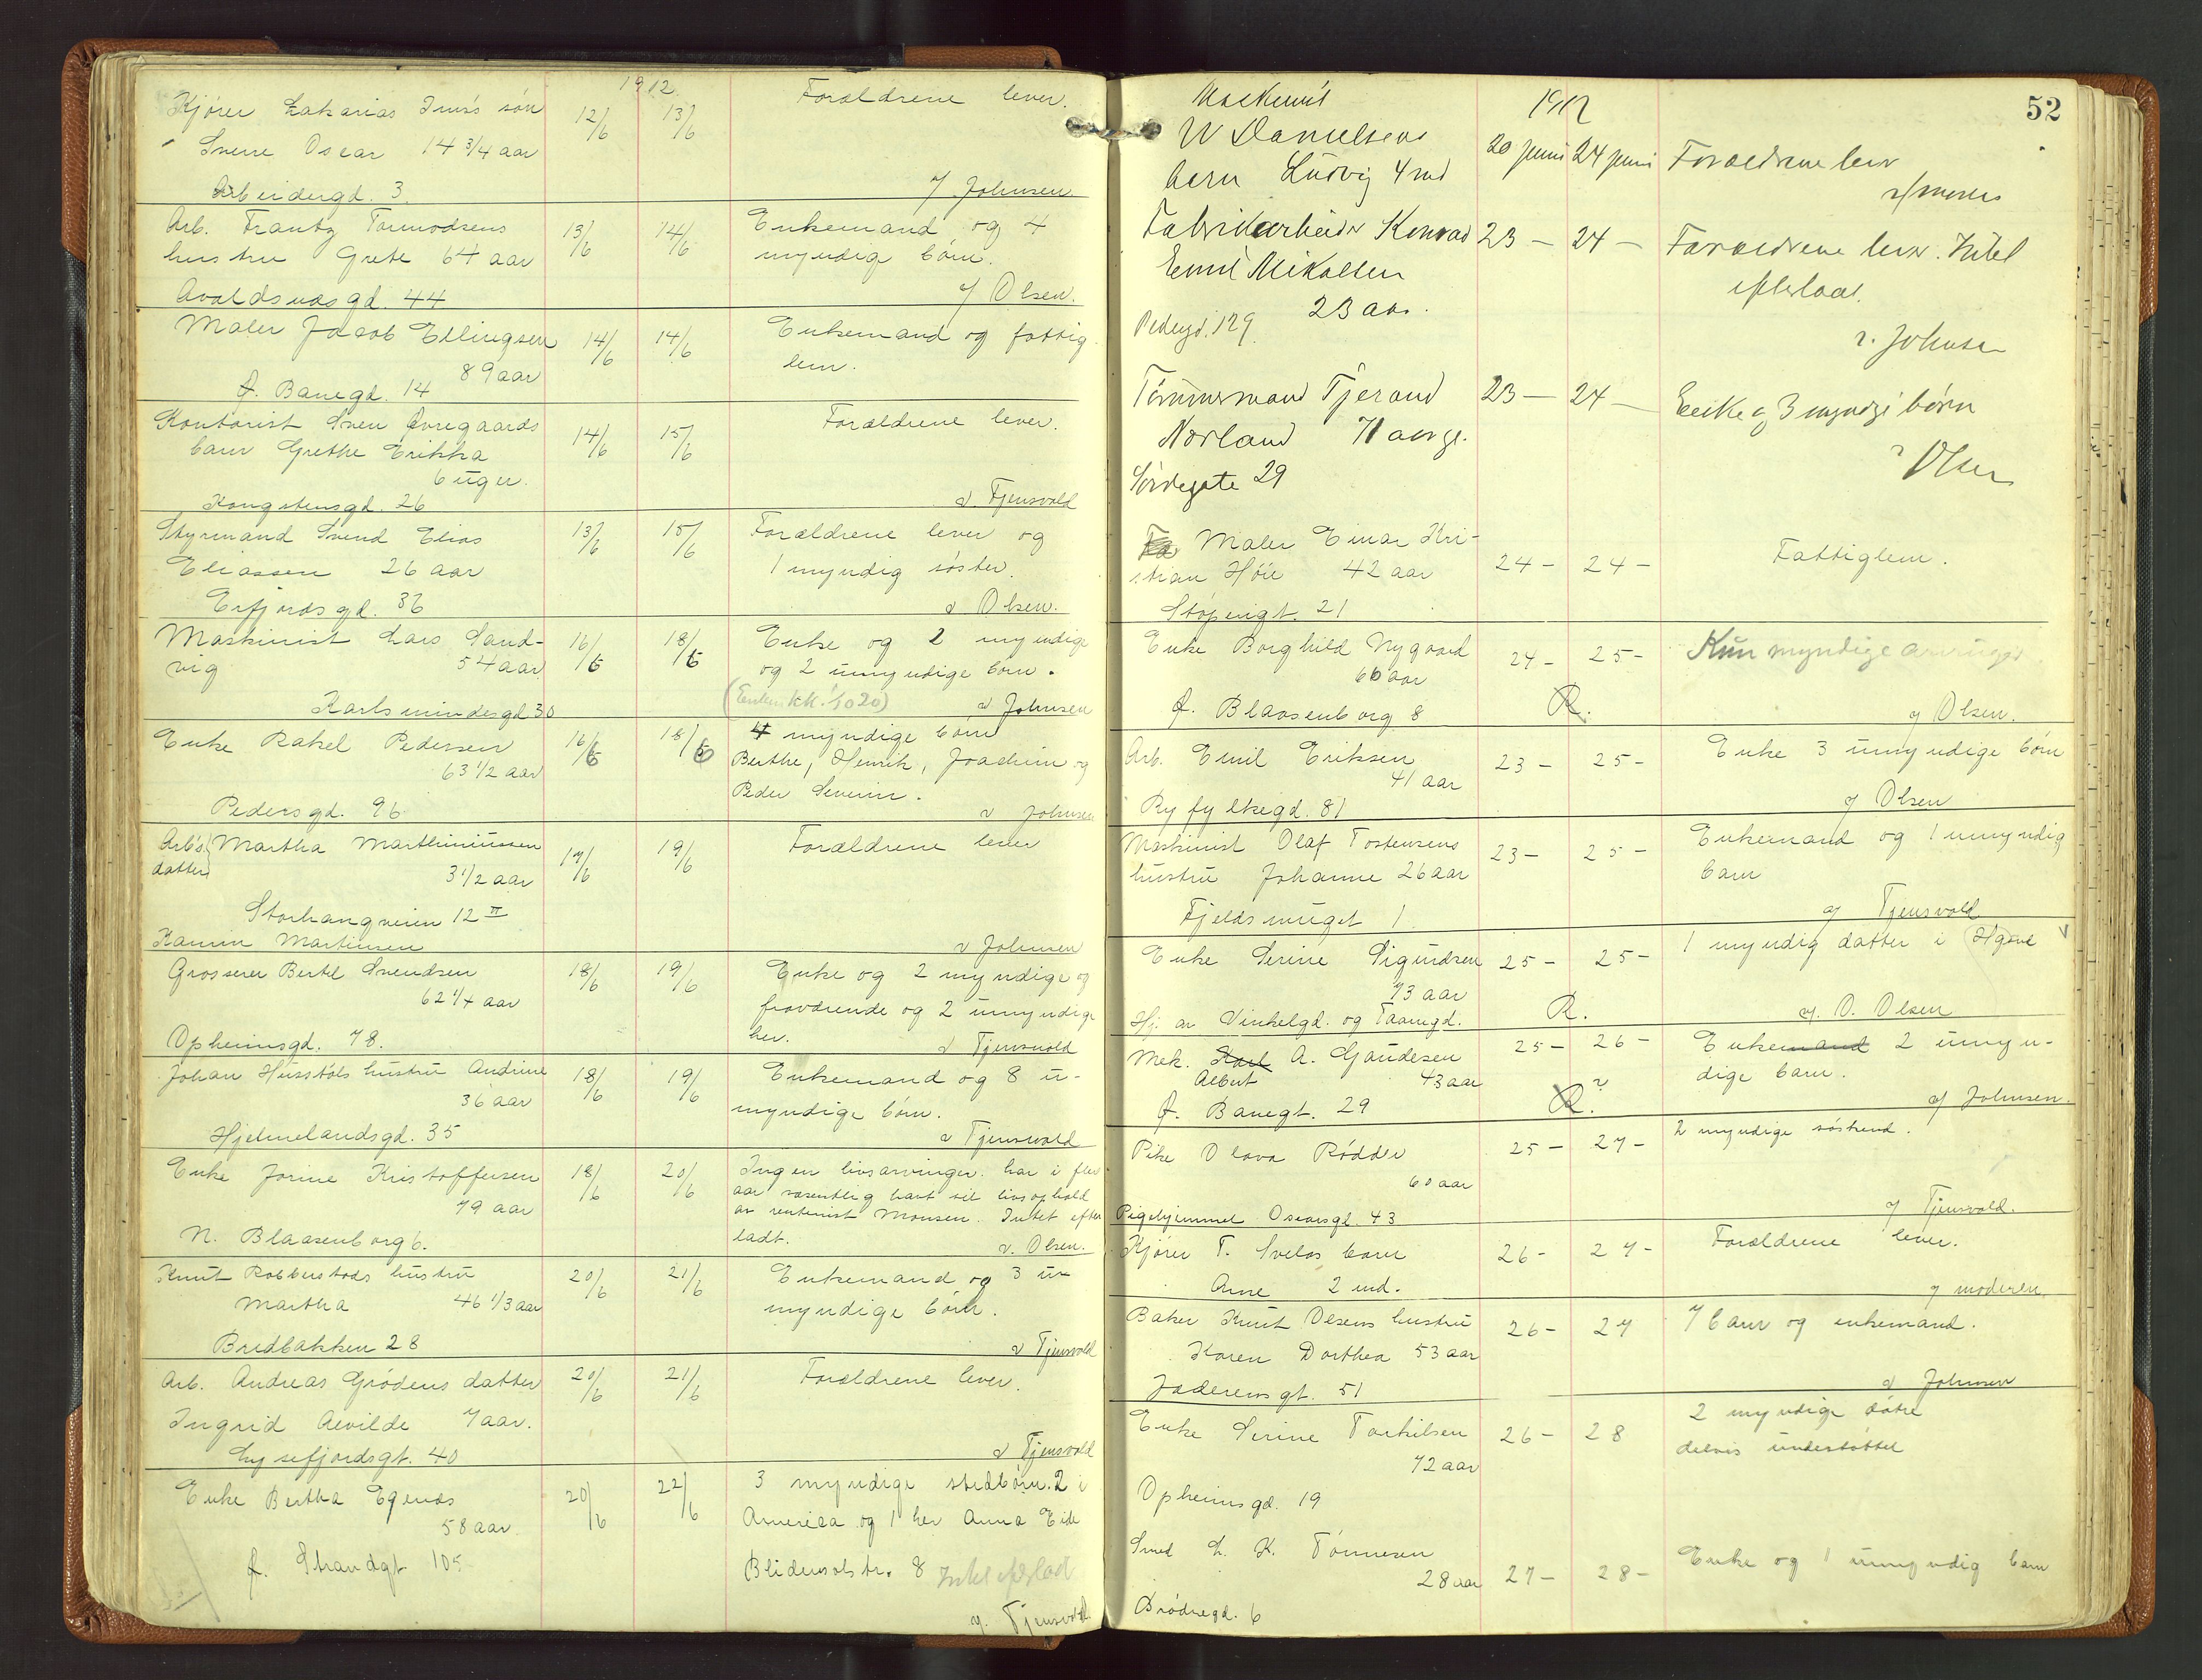 1912.
Kjører Zakarias Imss søn
Sverre Oscar 14 3/4 aar
Arbeidergd. 3.
12/6
13/6
Forældrene lever.
v/ Johnsen
Arb. Frantz Tormodsens
hustru Grete 64 aar
Avaldsnæsgd. 44
13/6
14/6
Enkemand og 4
myndig børn.
v/ Olsen.
Maler Jacob Ellingsen
89 aar
Ø. Banegd. 14
14/6
14/6
Enkemand og fattig
lem.
Kontorist Sven Øvregaards
barn Grethe Erikka
6 uger.
Kongstensgd. 26
14/6
15/6
Forældrene lever.
v Tjensvold
Styrmand Svend Elias
Eliassen 26 aar
Erfjordsgd. 36
13/6
15/6
Forældrene lever og
1 myndig søster.
v Olsen.
Maskinist Lars Sand-
vig 54 aar
Karlsmindesgd 30
16/6
18/6
Enke og 2 myndige
og 2 umyndige børn.
(Enken kk. 1020)
v Johnsen
Enke Rakel Pedersen
63 1/2 aar
Pedersgd. 96
16/6
18/6
4 myndige børn
Berthe, Henrik, Joachim og
Peder Severin.
v Johnsen
Arb's datter Martha Marthiniussen
3 1/2 aar
Storhaugveien 12 II
Kamin Martinsen
17/6
19/6
Forældrene lever
v Johnsen
Grosserer Bertl Svendsen
62 1/4 aar
Opheimsgd. 78.
18/6
19/6
Enke og 2 myndige og
fraværende og 2 umyndige
her.
v Tjensvold
Johan Husstøls hustru Andrine
36 aar
Hjelmelandsgd. 35
18/6
19/6
Enkemand og 8 u-
myndige børn.
v Tjensvold
Enke Jorine Kristoffersen
79 aar
N. Blaasenborg 6.
18/6
20/6
Ingen livsarvinger. har i flere
aar væsentlig havt sit livsophold
av rentenist Monsen. Intet efter
ladt.
v. Olsen.
Knut Robberstads hustru
Martha 46 1/3 aar
Bredbakken 28
20/6
21/6
Enkemand og 3 u-
myndige børn.
v Tjensvold
Arb. Andreas Grødens datter
Ingrid Alvilde 7 aar.
Lysefjordsgt. 40
20/6
21/6
Forældrene lever.
v Tjensvold
Enke Bertha Egenæs
58 aar
Ø. Strandgt 105
20/6
22/6
3 myndige stedbørn. 2 i
America og 1 her Anna Eide
Blidensolstr. 8 Intet efterladt
v. Tjensvold.
52
1912
Maskinist
W Danielsens
barn Ludvig 4 md
20 juni
24 juni
Forældrene lever
v/ moren
Fabrikarbeider Konrad
Emil Mikalsen
23 aar.
Pedersgd. 129
23 –
24 –
Forældrene lever. Intet
efterladt.
v. Johnsen
Tømmermand Tjerand
Norland 71 aar gl.
Hördegate 29
23 –
24 –
Enke og 3 myndige børn
v Olsen
Maler Einar Kri-
stian Höie 42 aar
Støperigt. 21
24 –
24 –
Fattiglem.
Enke Borghild Nygaard
66 aar
Ø. Blaasenborg 8
24 –
25 –
R.
Kun myndige arvinger
v/ Olsen.
Arb. Emil Eriksen
41 aar
Ryfylkegd. 81
23 –
25 –
Enke 3 umyndige børn
v/ Olsen
Maskinist Olaf Tostensens
hustru Johanne 26 aar
Fjeldsmuget 1
23 –
25 –
Enkemand og 1 umyndig
barn
v/ Tjensvold
Enke Serine Sigurdsen
73 aar
Hj. av Vinkelgd. og Taarngd.
25 –
25 –
R.
1 myndig datter i
v. O. Olsen
Mek. Karl A. Gaudesen
Albert 43 aar
Ø. Banegt. 29
25 –
26 –
R.
Enkemand 2 umyn-
dige barn.
v/ Johnsen.
Pike Olava Rødder
60 aar
Pigehjemmet Oscarsgt. 43
25 –
27 –
2 myndige søskend.
v/ Tjensvold.
Kjører T. Svelas barn
Arne 2 md.
26 –
27 –
Forældrene lever.
v/ moderen.
Baker Knut Olsens hustru
Karen Dorthea 53 aar
Jæderensgt. 51
26 –
27
7 barn og enkemand.
v Johnsen
Enke Serine Torkilsen
72 aar
Opheimsgd. 19
26 –
28
2 myndige døtre
delvis understøttet
Smed L. K. Tønnesen
28 aar
Brødregd. 6
27 –
28 –
Enke og 1 umyndig barn